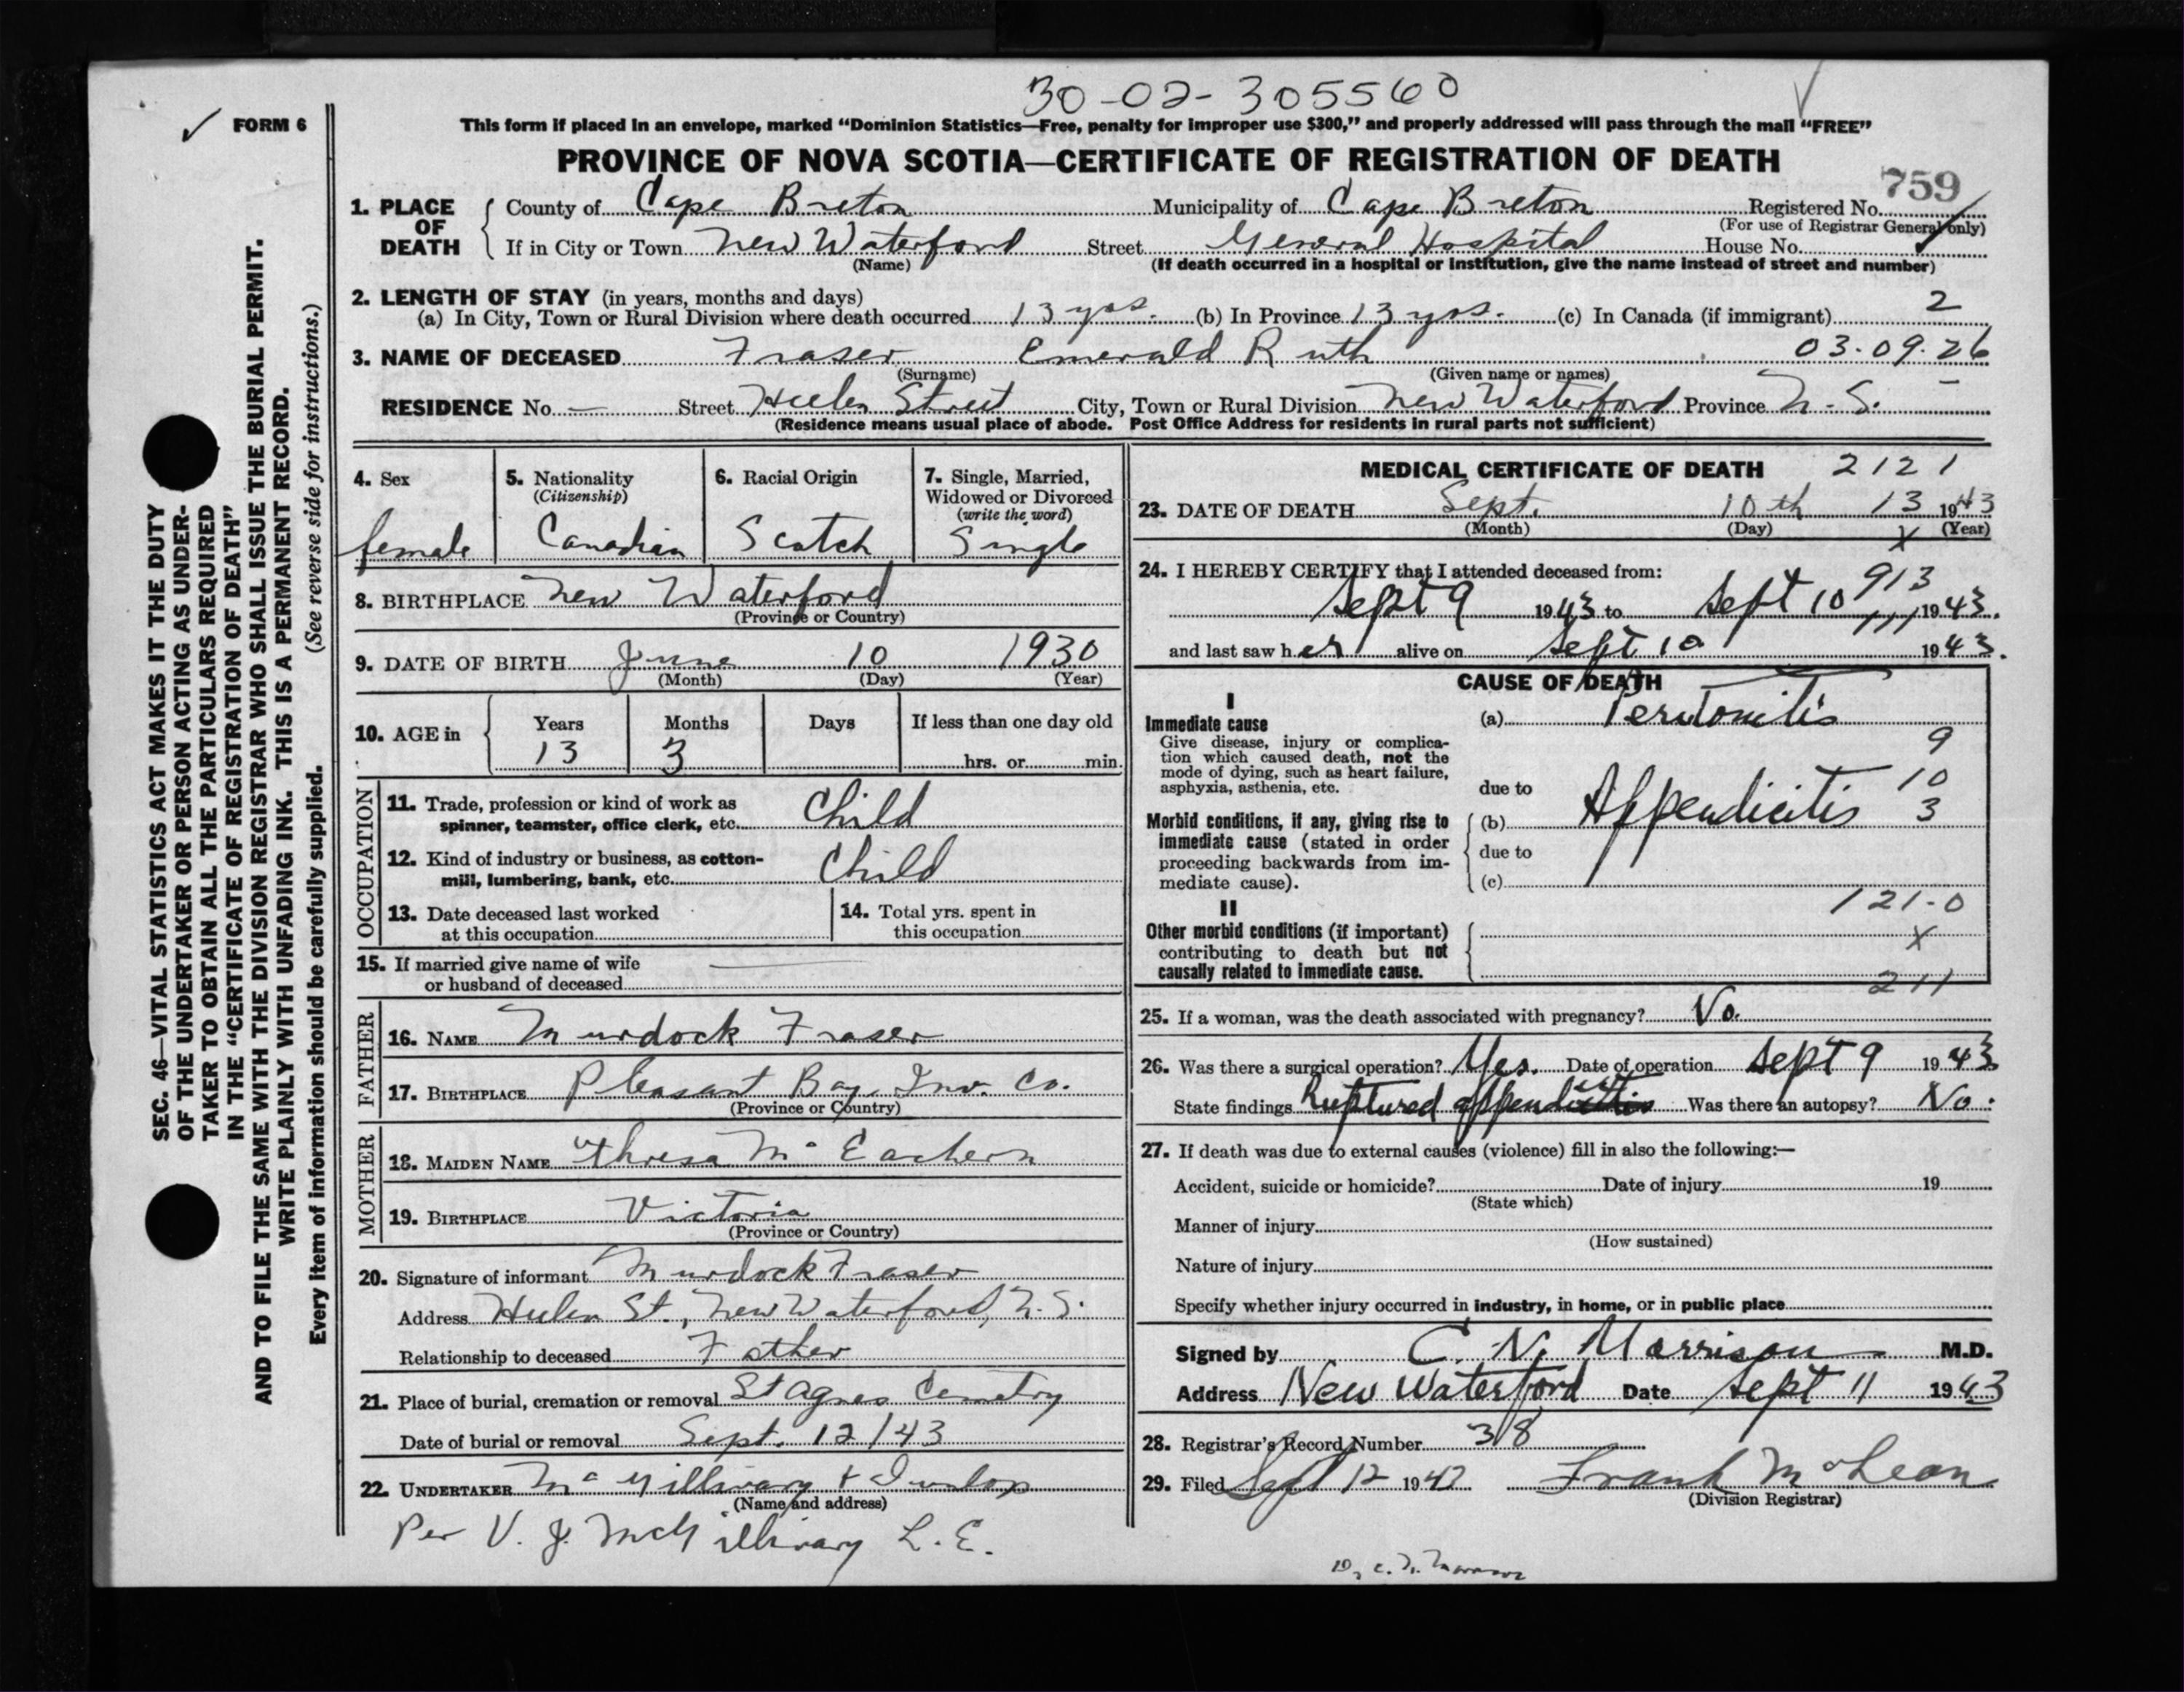 30-02-305560
FORM 6
This form if placed in an envelope, marked “Dominion Statistics—Free, penalty for improper use $300,” and properly addressed will pass through the mail “FREE”
PROVINCE OF NOVA SCOTIA—CERTIFICATE OF REGISTRATION OF DEATH
759
1. PLACE OF DEATH County of Cape Breton Municipality of Cape Breton Registered No.
(For use of Registrar General only)
If in City or Town New Waterford Street General Hospital House No.
(Name) (If death occurred in a hospital or institution, give the name instead of street and number)
2. LENGTH OF STAY (in years, months and days)
(a) In City, Town or Rural Division where death occurred 13 yrs. (b) In Province 13 yrs. (c) In Canada (if immigrant) 2
3. NAME OF DECEASED Fraser Emerald Ruth 03.09.26
(Surname) (Given name or names)
RESIDENCE No. — Street Helen Street City, Town or Rural Division New Waterford Province N.S. —
(Residence means usual place of abode. Post Office Address for residents in rural parts not sufficient)
4. Sex
female
5. Nationality
(Citizenship)
Canadian
6. Racial Origin
Scotch
7. Single, Married,
Widowed or Divorced
(write the word)
Single
8. BIRTHPLACE New Waterford
(Province or Country)
9. DATE OF BIRTH June 10 1930
(Month) (Day) (Year)
10. AGE in Years Months Days If less than one day old
13 3 hrs. or min.
OCCUPATION
11. Trade, profession or kind of work as
spinner, teamster, office clerk, etc. Child
12. Kind of industry or business, as cotton-
mill, lumbering, bank, etc. Child
13. Date deceased last worked
at this occupation
14. Total yrs. spent in
this occupation
15. If married give name of wife
or husband of deceased
FATHER
16. NAME Murdock Fraser
17. BIRTHPLACE Pleasant Bay, Inv. Co.
(Province or Country)
MOTHER
18. MAIDEN NAME Thresa Mc Eachern
19. BIRTHPLACE Victoria
(Province or Country)
20. Signature of informant Murdock Fraser
Address Helen St., New Waterford, N.S.
Relationship to deceased Father
21. Place of burial, cremation or removal St Agnes Cemetry
Date of burial or removal Sept. 12/43
22. UNDERTAKER Mc Gillivary + Dunlop
(Name and address)
Per V. J. McGillivary L.E.
MEDICAL CERTIFICATE OF DEATH 2121
23. DATE OF DEATH Sept. 10th 13 1943
(Month) (Day) X (Year)
24. I HEREBY CERTIFY that I attended deceased from: 913
Sept 9 1943 to Sept 10 1943.
and last saw her alive on Sept 10 1943.
CAUSE OF DEATH
I
Immediate cause (a) Peritonitis
Give disease, injury or complica-
tion which caused death, not the
mode of dying, such as heart failure,
asphyxia, asthenia, etc.
9
10
3
due to
Morbid conditions, if any, giving rise to
immediate cause (stated in order
proceeding backwards from im-
mediate cause).
(b) Appendicitis
due to
(c)
121-0
II
Other morbid conditions (if important)
contributing to death but not
causally related to immediate cause.
X
211
25. If a woman, was the death associated with pregnancy? No.
26. Was there a surgical operation? Yes. Date of operation Sept 9 1943
State findings Ruptured Was there an autopsy? No.
27. If death was due to external causes (violence) fill in also the following:—
Accident, suicide or homicide? Date of injury 19
(State which)
Manner of injury
(How sustained)
Nature of injury
Specify whether injury occurred in industry, in home, or in public place
Signed by C. N. Morrison M.D.
Address New Waterford Date Sept 11 1943
28. Registrar's Record Number 38
29. Filed Sept 12 1943 Frank McLean
(Division Registrar)
SEC. 46—VITAL STATISTICS ACT MAKES IT THE DUTY
OF THE UNDERTAKER OR PERSON ACTING AS UNDER-
TAKER TO OBTAIN ALL THE PARTICULARS REQUIRED
IN THE “CERTIFICATE OF REGISTRATION OF DEATH”
AND TO FILE THE SAME WITH THE DIVISION REGISTRAR WHO SHALL ISSUE THE BURIAL PERMIT.
WRITE PLAINLY WITH UNFADING INK. THIS IS A PERMANENT RECORD.
Every item of information should be carefully supplied. (See reverse side for instructions.)